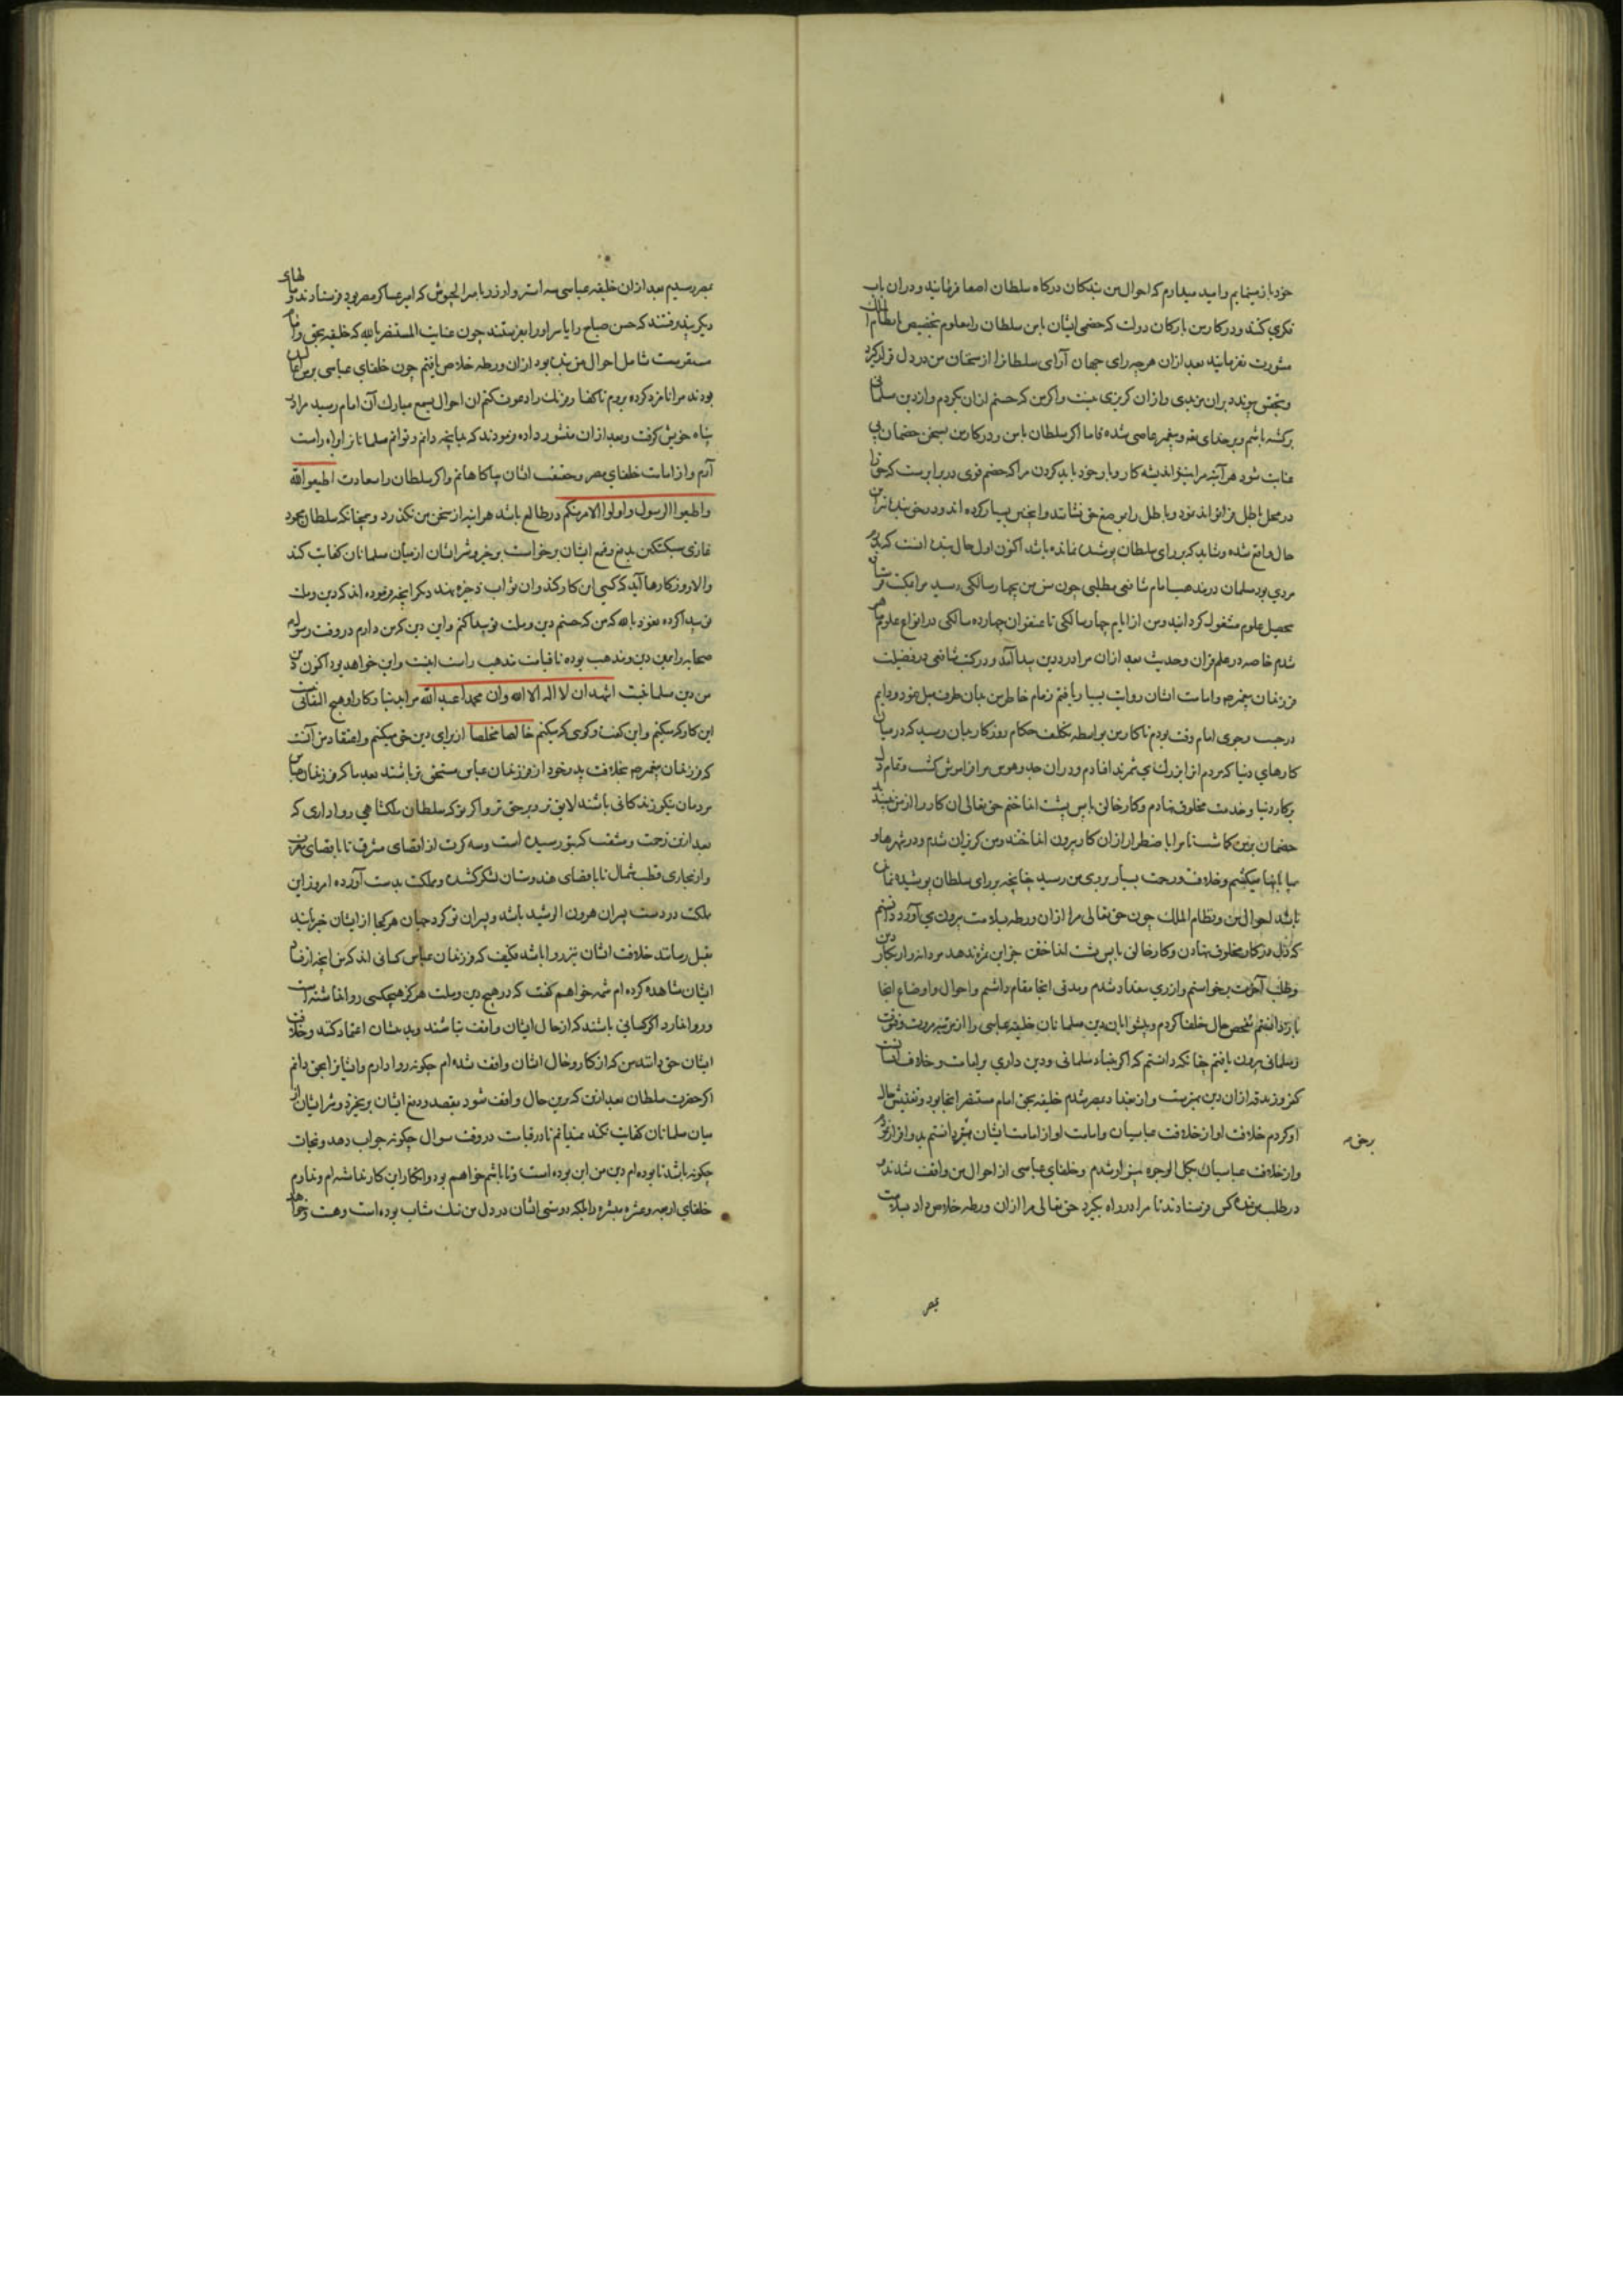 خود باز مینمایم و امید میدارم که احوال من بندکان درکاه سلطان اصغا فرمایند و در ان باب
فکری کنند و در کار من با ارکان دولت که خصمی ایشان با من سلطان را معلوم بتخصیص با نظام الملک
مشورت نفرمایند بعد ازان هرچه رای جهان آرای سلطانرا از سخنان من در دل قرار کیرد
و بتحقیق پیوندد بران مزیدی و ازان کریزی نیست و اکر من که حسنم ازان بکردم و از دین مسلمانی
برکشته باشم و بر خدای تعالی و پیغمبر عاصی شده فاما اکر سلطان با من و در کار من بسخن خصمان بی
عنایت شود هر آینه مرا نیز اندیشه کار و بار خود باید کردن مرا که خصم قوی در برابرست که حق را
در محل باطل فرا تواند نمود و باطل را بموضع حق نشاند و اینچنین بسیار کرده اند و در حق بنده نیز این
حال واقع شده و شاید که بر رای سلطان پوشیده نمانده باشد اکنون اول حال بنده انست که پدرم
مردی بود مسلمان در مذهب امام شافعی مطلبی چون سن من بچهار سالکی رسید مرا بمکتب فرستاد
بتحصیل علوم مشغول کردانید و من از ایام چهار سالکی تا عنفوان چهارده سالکی در انواع علوم ماهر
شدم خاصه در علم قران و حدیث بعد ازان مرا درد دین پیدا آمد و در کتب شافعی در فضیلت
فرزندان پیغمبر و امامت ایشان روایت بسیار یافتم زمام خاطر من بدان طرف میل نمود و دایم
در جست و جوی امام وقت بودم تا کار من بواسطه تکلیف حکام روزکار بدان رسید که در میان
کارهای دنیا که مردم انرا بزرک می شمرند افتادم و در ان جد و هوس مرا فراموش کشت و تمام دل
بر کار دنیا و خدمت مخلوق نهادم و کار خالق با پس پشت انداختم حق تعالی ان کار را از من نپسندید
خصمان بر من کماشت تا مرا باضطرار ازان کار بیرون انداختند و من کریزان شدم و در شهرها و
بیابانها میکشتم و خلافت و زحمت بسیار بروی من رسید چنانچه بر رای سلطان پوشیده نمانده
باشد احوال من و نظام الملک چون حق تعالی مرا ازان ورطه بسلامت بیرون می آورد دانستم
که دل در کار مخلوق نهادن و کار خالق با پس پشت انداختن جز این ثمره ندهد مردانه وار بکار دین
و طلب آخرت برخواستم و از ری ببغداد شدم و مدتی انجا مقام داشتم و احوال و اوضاع انجا
باز دانستم تفحص حال خلفا کردم و پیشوایان دین مسلمانان خلیفه عباسی را از مرتبه مروت و فتوت
و مسلمانی بیرون یافتم چنانکه دانستم که اکر بنیاد مسلمانی و دین داری بر امامت و خلافت ایشانست
کفر و زندقه ازان دین بهترست و از بغداد بمصر شدم خلیفه بحق امام مستنصر انجا بود و تفتیش حال
او کردم خلافت او از خلافت عباسیان و امامت او از امامت ایشان بهتر دانستم بدو اقرار کردم
و از خلافت عباسیان بکل الوجوه بیزار شدم و خلفای عباسی از احوال من واقف شدند و
در طلب من کس فرستادند تا مرا در راه بکیرد حق تعالی مرا ازان ورطه خلاص داد بسلامت
برحق
بمصر
بمصر رسیدم بعد ازان خلیفه عباسی سه استر وار زر بامیر الجیوش که امیر عساکر مصر بود فرستادند و مالهای
دیکر پذیرفتند که حسن صباح را یا سر او را بفرستند چون عنایت المستنصر بالله که خلیفه بحق و امام
مستقرست شامل احوال من بنده بود ازان ورطه خلاص یافتم چون خلفای عباسی برین اغالیده
بودند مرا نامزد کرده بروم تا کفار فرنک را دعوت کنم ان احوال بسمع مبارک آن امام رسید مرا در
پناه خویش کرفت و بعد ازان منشور داده فرمودند که بدانچه دانم و توانم مسلمانانرا براه راست
آرم و از امامت خلفای مصر و حقیقت ایشان بیاکاهانم و اکر سلطان را سعادت اطیعوا الله
و اطیعوا الرسول و اولوا الامر منکم در طالع باشد هر اینه از سخن من نکذرد و همچنانکه سلطان محمود
غازی سبکتکین بدفع و قمع ایشان برخواست برخیزد و شر ایشان از میان مسلمانان کفایت کند
و الا روزکارها آید که کسی این کار کند و ان ثواب ذخیره بنهد دیکر انچه فرموده اند که دین و ملت
نو پیدا کرده نعوذ بالله که من که حسنم دین و ملت نو پیدا کنم و این دین که من دارم در وقت رسول
صحابه را همین دین و مذهب بوده تا قیامت مذهب راست اینست و این خواهد بود اکنون دین
من دین مسلمانیست اشهد ان لا اله الا الله وان محمدا عبد الله مرا بدنیا و کار او هیچ التفاتی نیست
این کار که میکنم و این کفت و کوی که میکنم خالصا مخلصا از برای دین حق میکنم و اعتقاد من آنست
که فرزندان پیغمبر بخلافت پدر خود از فرزندان عباس مستحق تر باشند بعد ما که فرزندان عباس
مردمان نیکو زندکانی باشند لایق تر و بر حق تر و اکر نه که سلطان ملکشاهی روا داری که
بعد ازین زحمت و مشقت که بتو رسیده است و سه کرت از اقصای مشرق تا باقصای مغرب
و از محاری قطب شمال تا باقصای هندوستان لشکر کشیده و ملکت بدست آورده امروز این
ملکت در دست پسران هرون الرشید باشد و پسران تو کرد جهان هر کجا از ایشان خبر یابند
بقتل رسانند خلافت ایشان نیز روا باشد فکیف که فرزندان عباس کسانی اند که من انچه از افعال
ایشان مشاهده کرده ام شمه خواهم کفت که در هیچ دین و ملت هرکز هیچکسی روا نداشته است
و روا ندارد اکر کسانی باشند که از حال ایشان واقف نباشند و بدیشان اعتماد کنند و خلافت
ایشان حق دانند من که از کار و حال ایشان واقف شده ام چکونه روا دارم و ایشانرا بحق دانم
اکر حضرت سلطان بعد ازین که برین حال واقف شود بقصد و دفع ایشان برنخیزد و شر ایشان از
میان مسلمانان کفایت نکند نمیدانم تا در قیامت در وقت سوال چکونه جواب دهد و نجات
چکونه باشد تا بوده ام دین من این بوده است و تا باشم خواهم بود و انکار این کار نداشته ام و ندارم
خلفای اربعه و عشره مبشره را بلکه دوستی ایشان در دل من نیک مثاب بوده است و هست و خواهد